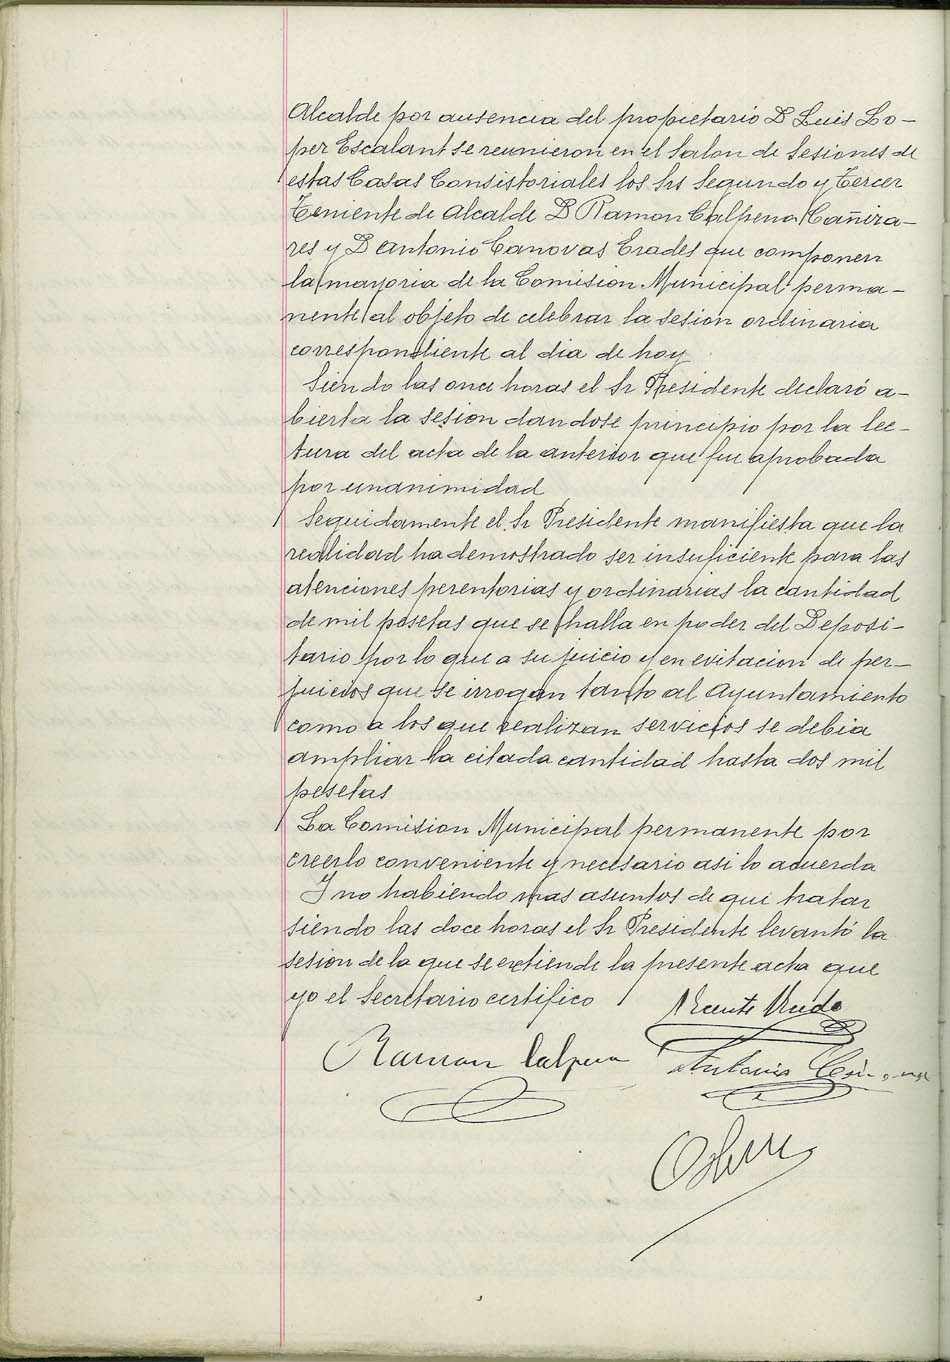 Alcalde por ausencia del propietario D Luis Lo-
per Escalant se reunieron en el Salon de Sesiones de
estas Casas Consistoriales los Srs Segundo y Tercer
Teniente de Alcalde D Ramon Calpena Cañiza-
res y D Antonio Canovas Erades que componen
la mayoria de la Comision Municipal perma-
nente al objeto de celebrar la sesion ordinaria
correspondiente al dia de hoy
Siendo las once horas el Sr Presidente declaró a-
bierta la sesion dandose principio por la lec-
tura del acta de la anterior que fue aprobada
por unanimidad
Seguidamente el Sr Presidente manifiesta que la
realidad ha demostrado ser insuficiente para las
atenciones perentorias y ordinarias la cantidad
de mil pesetas que se halla en poder del Deposi-
tario por lo que a su juicio y en evitacion de per-
juicios que se irrogan tanto al Ayuntamiento
como a los que realizan servicios se debia
ampliar la citada cantidad hasta dos mil
pesetas
La Comision Municipal permanente por
creerlo conveniente y necesario asi lo acuerda
Y no habiendo mas asuntos de que tratar
siendo las doce horas el Sr Presidente levantó la
sesion de la que se extiende la presente acta que
yo el Secretario certifico
Vicente
Ramon Calpena
Antonio